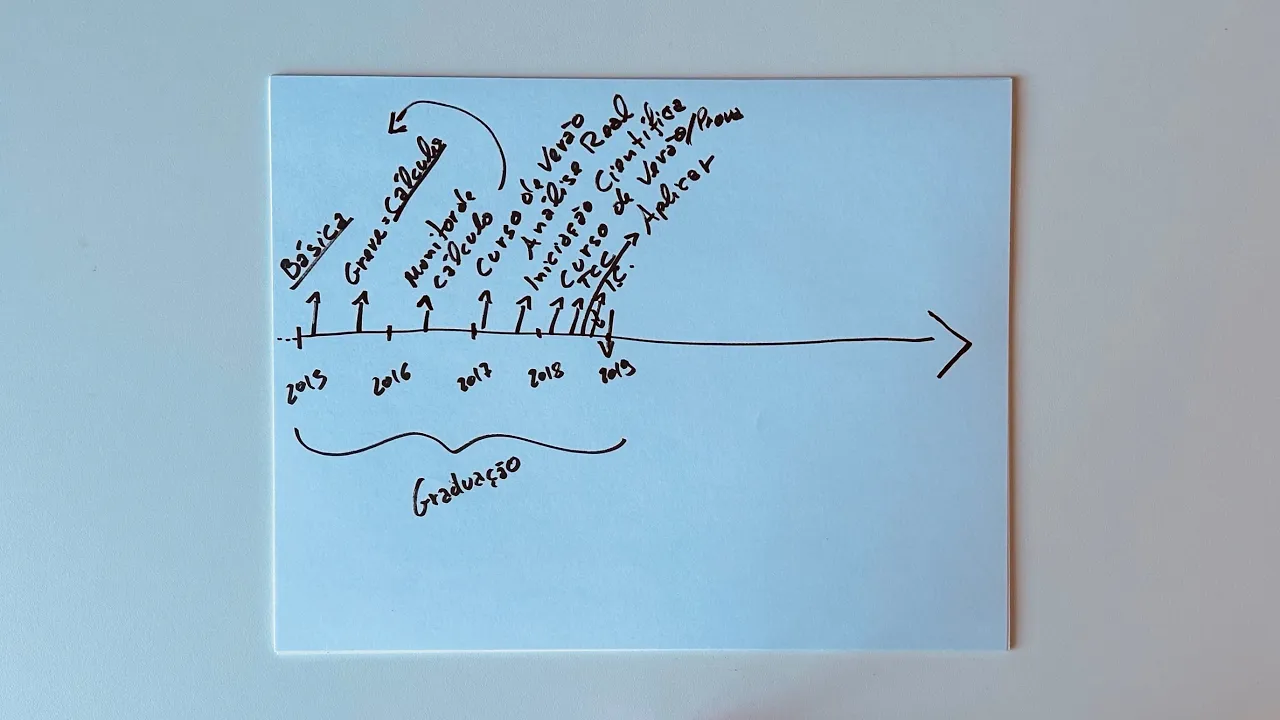 Básica
Greve = Cálculo
Monitor de
Cálculo
Curso de Verão
Análise Real
Iniciação Científica
Curso de Verão/Prova
TCC
I.C.
Aplicar
2015
2016
2017
2018
2019
Graduação